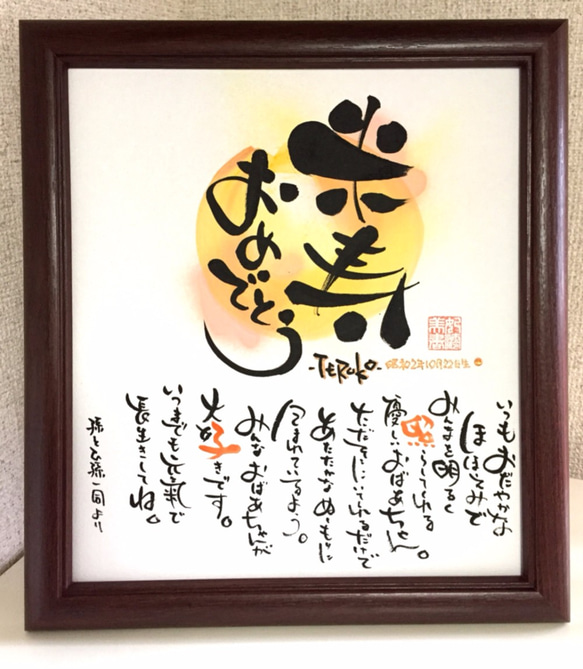 米寿
おめでとう
-TERUKO-
昭和2年10月22日生
いつもおだやかな
ほほえみで
みんなを明るく
照らしてくれる
優しいおばあちゃん。
ただそこにいてくれるだけで
あたたかなぬくもりに
包まれているよう。
みんなおばあちゃんが
大好きです。
いつまでも元気で
長生きしてね。
孫とひ孫一同より